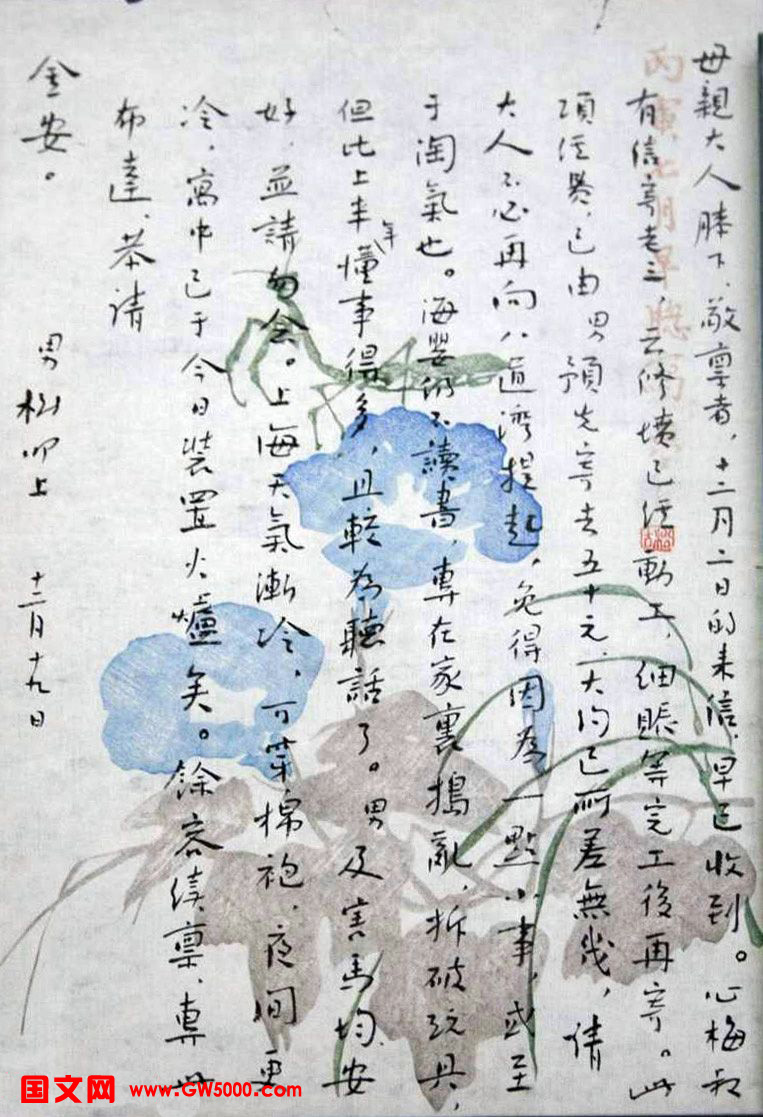 母親大人膝下，敬稟者，十二月二日的来信，早已收到。心梅叔
有信寄老三，云修墳已經動工，細賬等完工後再寄。此
項經費，已由男預先寄去五十元，大約已所差無幾，請
大人不必再向八道灣提起，免得因為一點小事，或至
于淘氣也。海嬰仍不讀書，專在家裏搗亂，拆破玩具，
但比上半年懂事得多，且較為聽話了。男及害馬均安
好，並請勿念。上海天氣漸冷，可穿棉袍，夜間更
冷，寓中已于今日裝置火爐矣。餘容續稟，專此
布達，恭請
金安。
男樹叩上 十二月十九日
丙寅七月早聴寫
国文网 www.GW5000.com